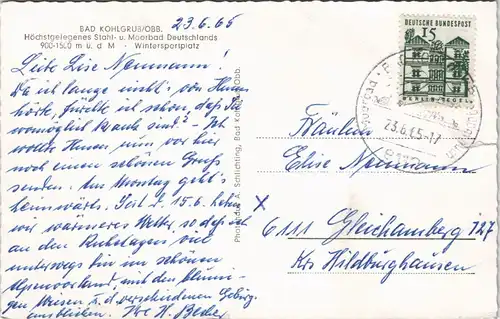 23.6.65
BAD KOHLGRUB/OBB.
Höchstgelegenes Stahl- u. Moorbad Deutschlands
900-1500 m ü. d. M - Wintersportplatz
Liebe Elise Neumann!
Da ich lange nichts von Ihnen
hörte, fürchte ich schon, daß Sie
womöglich krank sind? - Ich
wollte Ihnen nun vor hier
noch einen schönen Gruß
senden. Am Montag geht's
heimwärts. Seit d. 15.6. haben
wir wärmeres Wetter, so daß ich
an den Ruhetagen viel
unterwegs bin im schönen
Alpenvorland, mit den blumi-
gen Wiesen u. d. verschiedenen Gebirgs-
ausblicken. Ihre H. Becker
Schlichting, Bad Kohlgrub/Obb.
DEUTSCHE BUNDESPOST
15
BERLIN-TEGEL
23.6.65-17
Fräulein
Elise Neumann
x
6111 Gleichamberg 127
Krs Hildburghausen